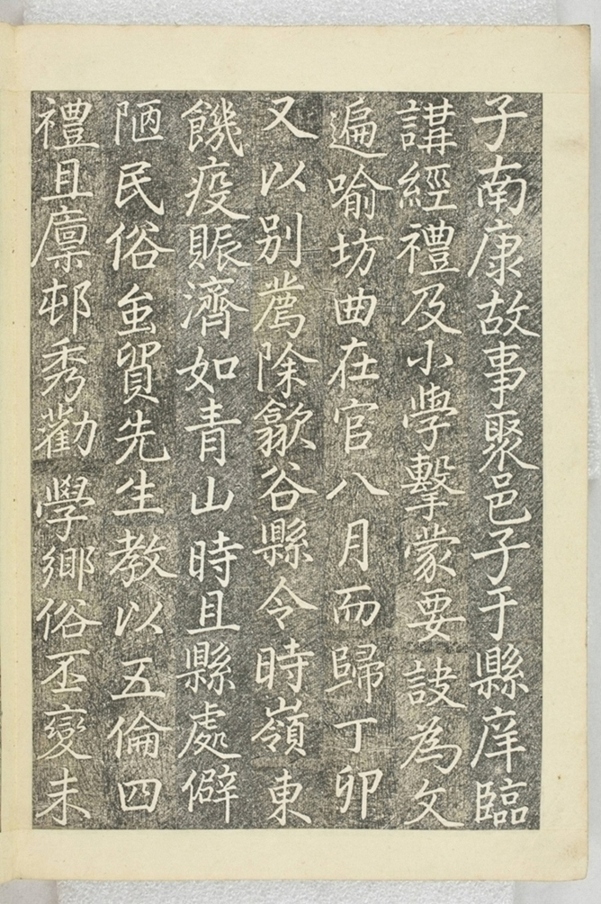 子南康故事聚邑子于縣庠臨
講經禮及小學擊蒙要訣為文
遍喻坊曲在官八月而歸丁卯
又以别薦除歙谷縣令時嶺東
饑疫賑濟如青山時且縣處僻
陋民俗蚩貿先生教以五倫四
禮且廪邨秀勸學鄉俗丕變未